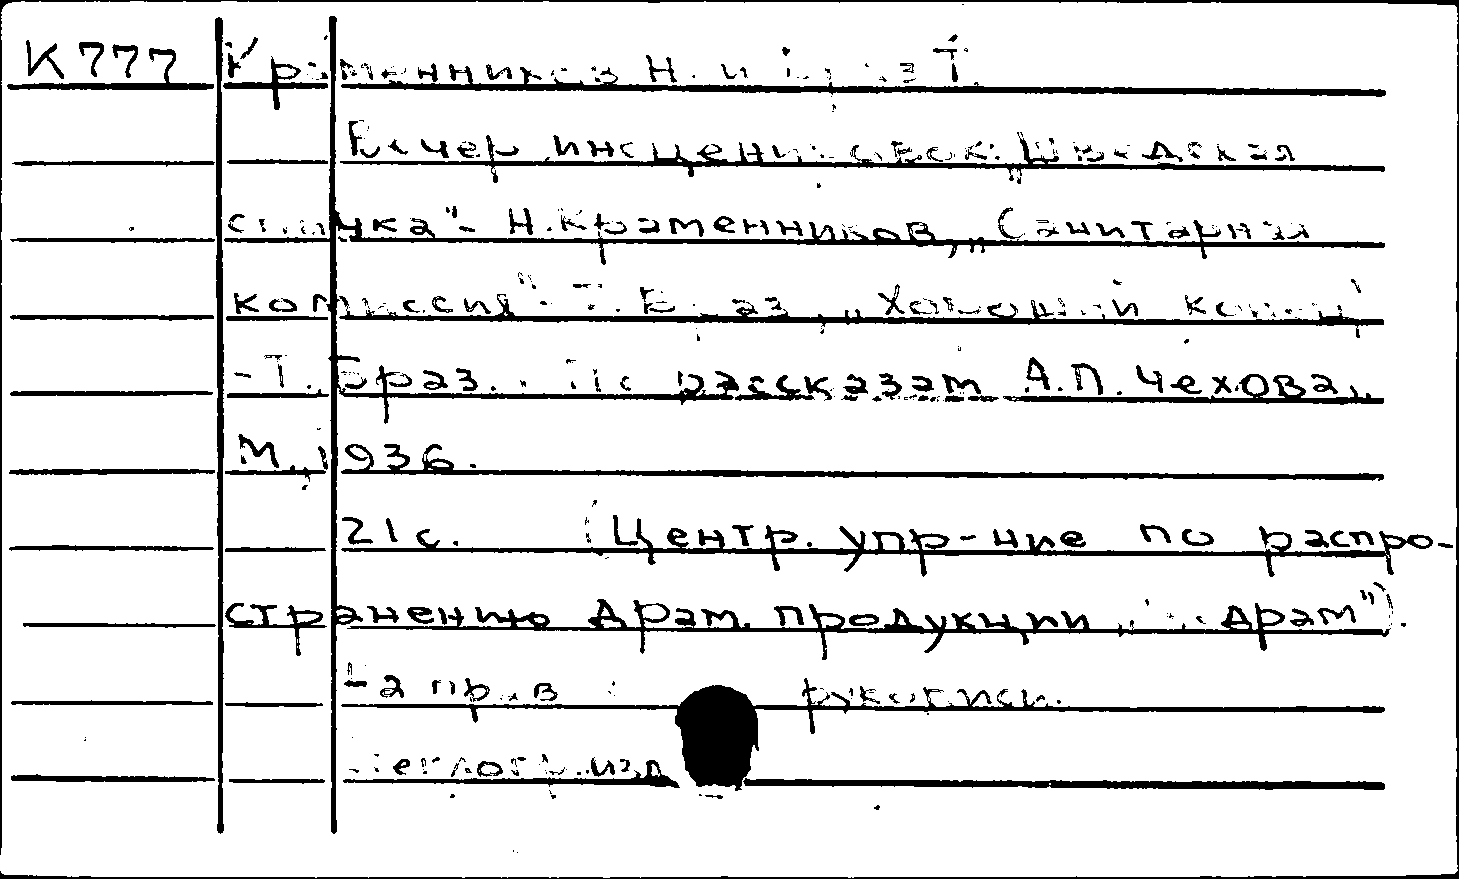 К777 Краменников Н. и Браз Т.
Вечер инсценировок: „Шведская
спичка"- Н.Краменников, „Санитарная
комиссия"- Т. Браз, „Хороший конец"
- Т. Браз. По рассказам А.П. Чехова.
М., 1936.
21 с. (Центр. упр-ние по распро-
странению драм. продукции „Цедрам").
На прав рукописи.
Стеклогр. изд